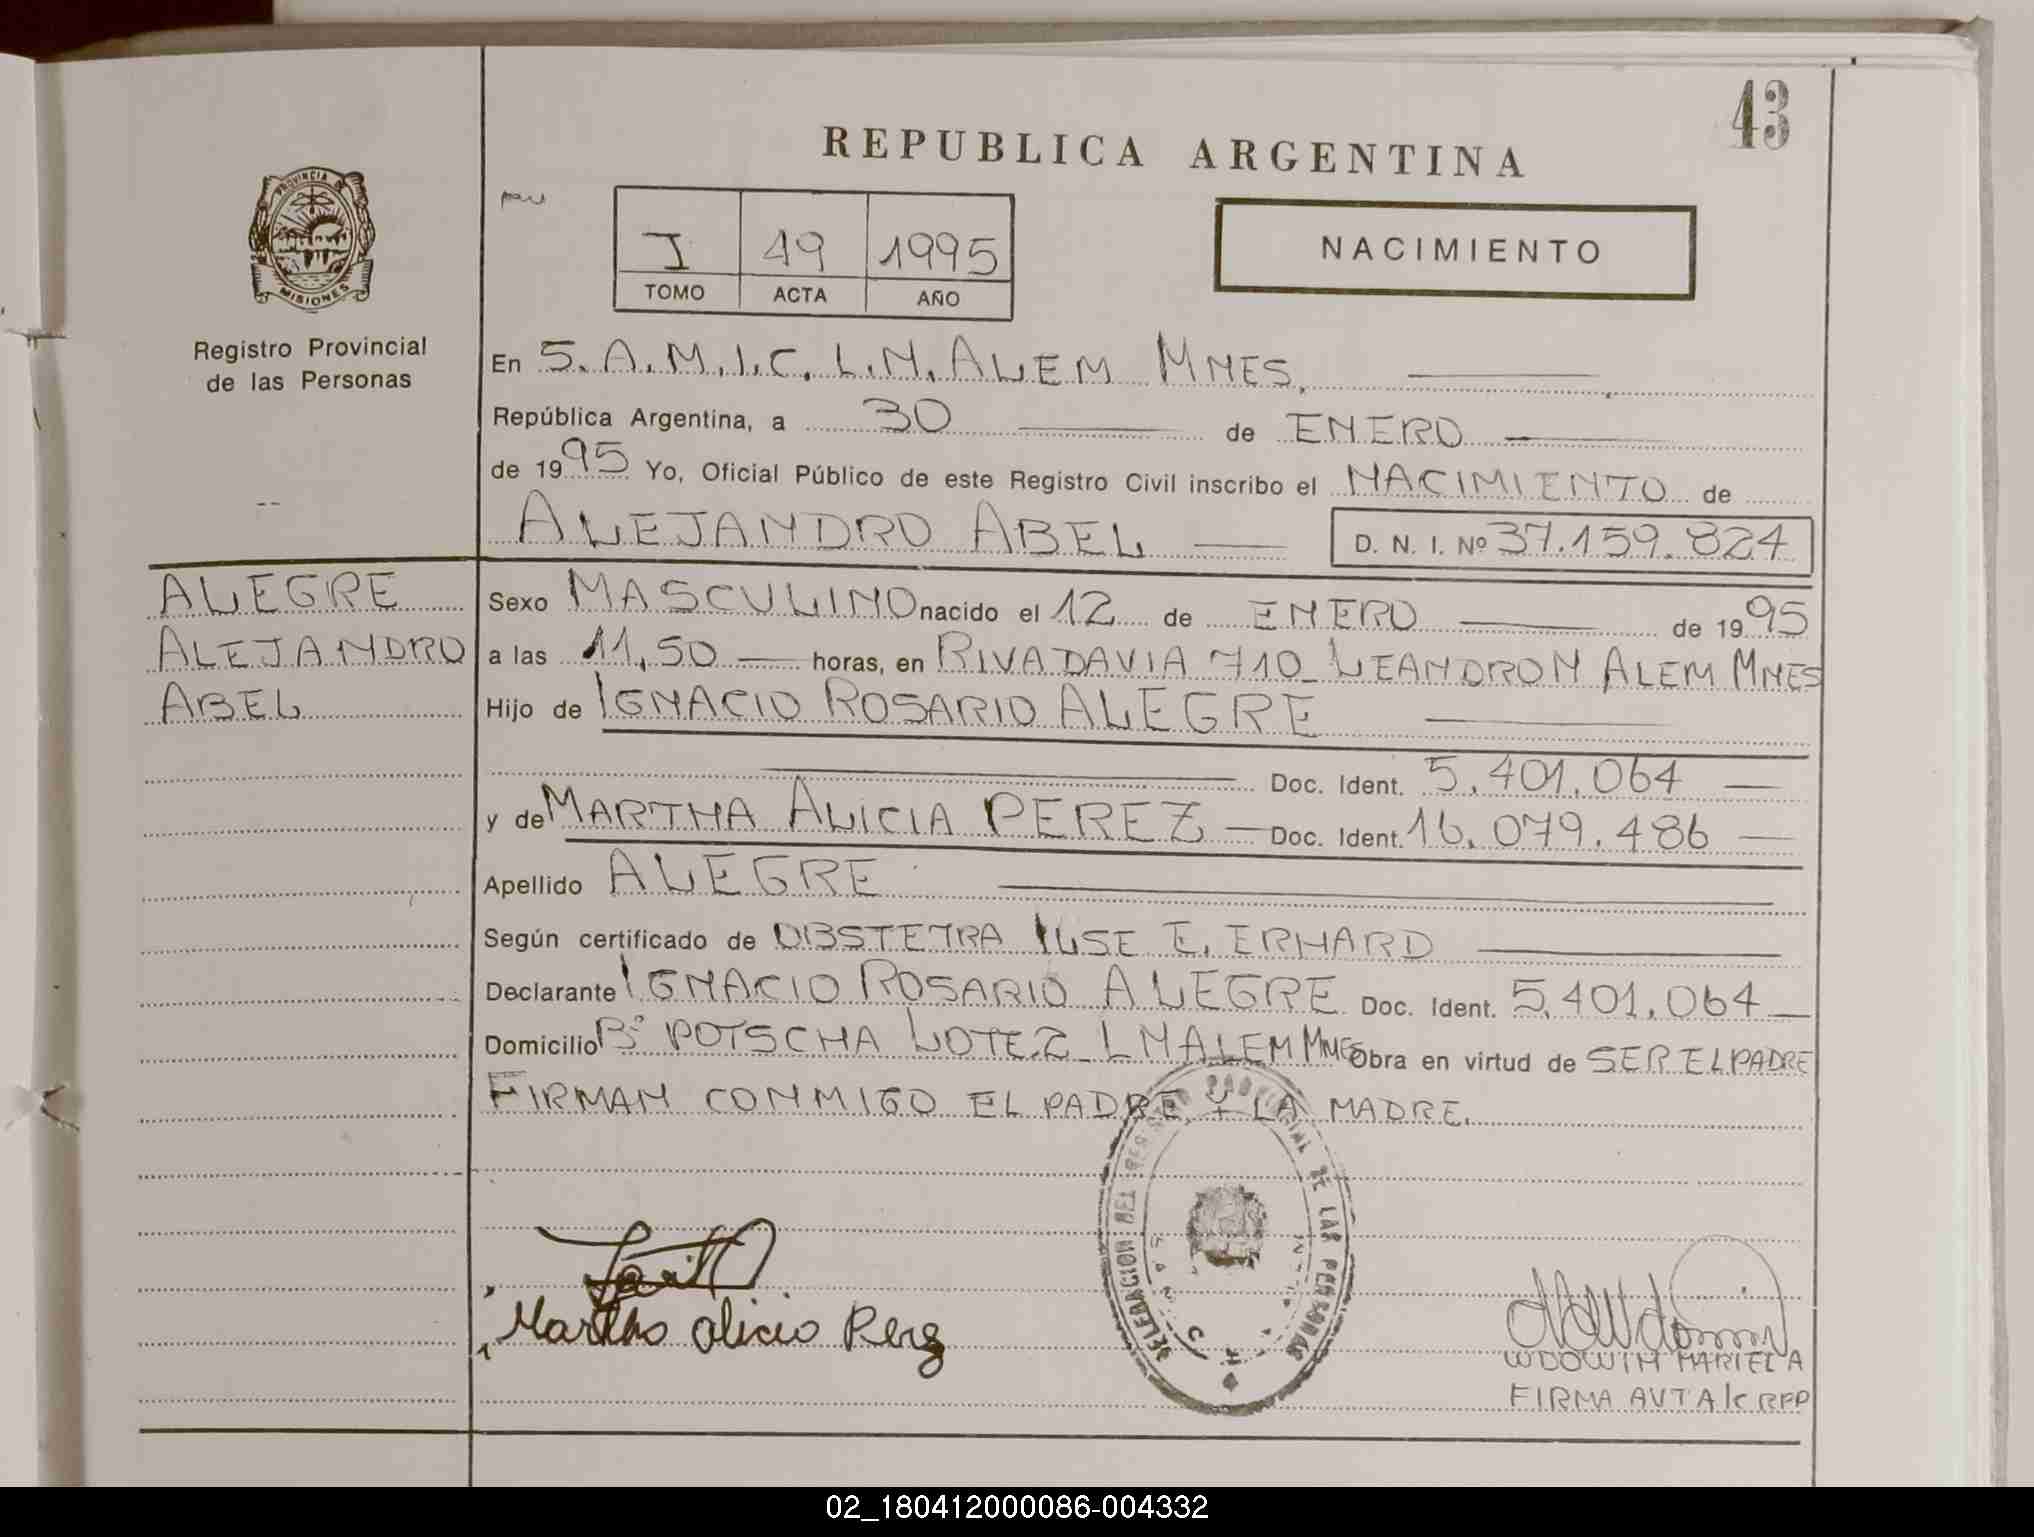 43
REPUBLICA ARGENTINA
PROVINCIA DE
MISIONES
Registro Provincial
de las Personas
I 49 1995
TOMO ACTA AÑO
NACIMIENTO
En S.A.M.I.C. L.N. ALEM MNES.
República Argentina, a 30 de ENERO
de 1995 Yo, Oficial Público de este Registro Civil inscribo el NACIMIENTO de
ALEJANDRO ABEL D. N. I. Nº 37.159.824
ALEGRE
ALEJANDRO
ABEL
Sexo MASCULINO nacido el 12 de ENERO de 1995
a las 11,50 horas, en RIVADAVIA 710_ LEANDRO N ALEM MNES
Hijo de IGNACIO ROSARIO ALEGRE
Doc. Ident. 5.401.064
y de MARTHA ALICIA PEREZ Doc. Ident. 16.079.486
Apellido ALEGRE
Según certificado de OBSTETRA ILSE E. ERHARD
Declarante IGNACIO ROSARIO ALEGRE Doc. Ident. 5.401.064
Domicilio Bº POTSCHA LOTE 2_ L N ALEM MNES Obra en virtud de SER EL PADRE
FIRMAN CONMIGO EL PADRE Y LA MADRE.
DELEGACION DEL REGISTRO PROVINCIAL DE LAS PERSONAS
Martha Alicia Perez
WDOWIN MARIELA
FIRMA AUTA
02_180412000086-004332